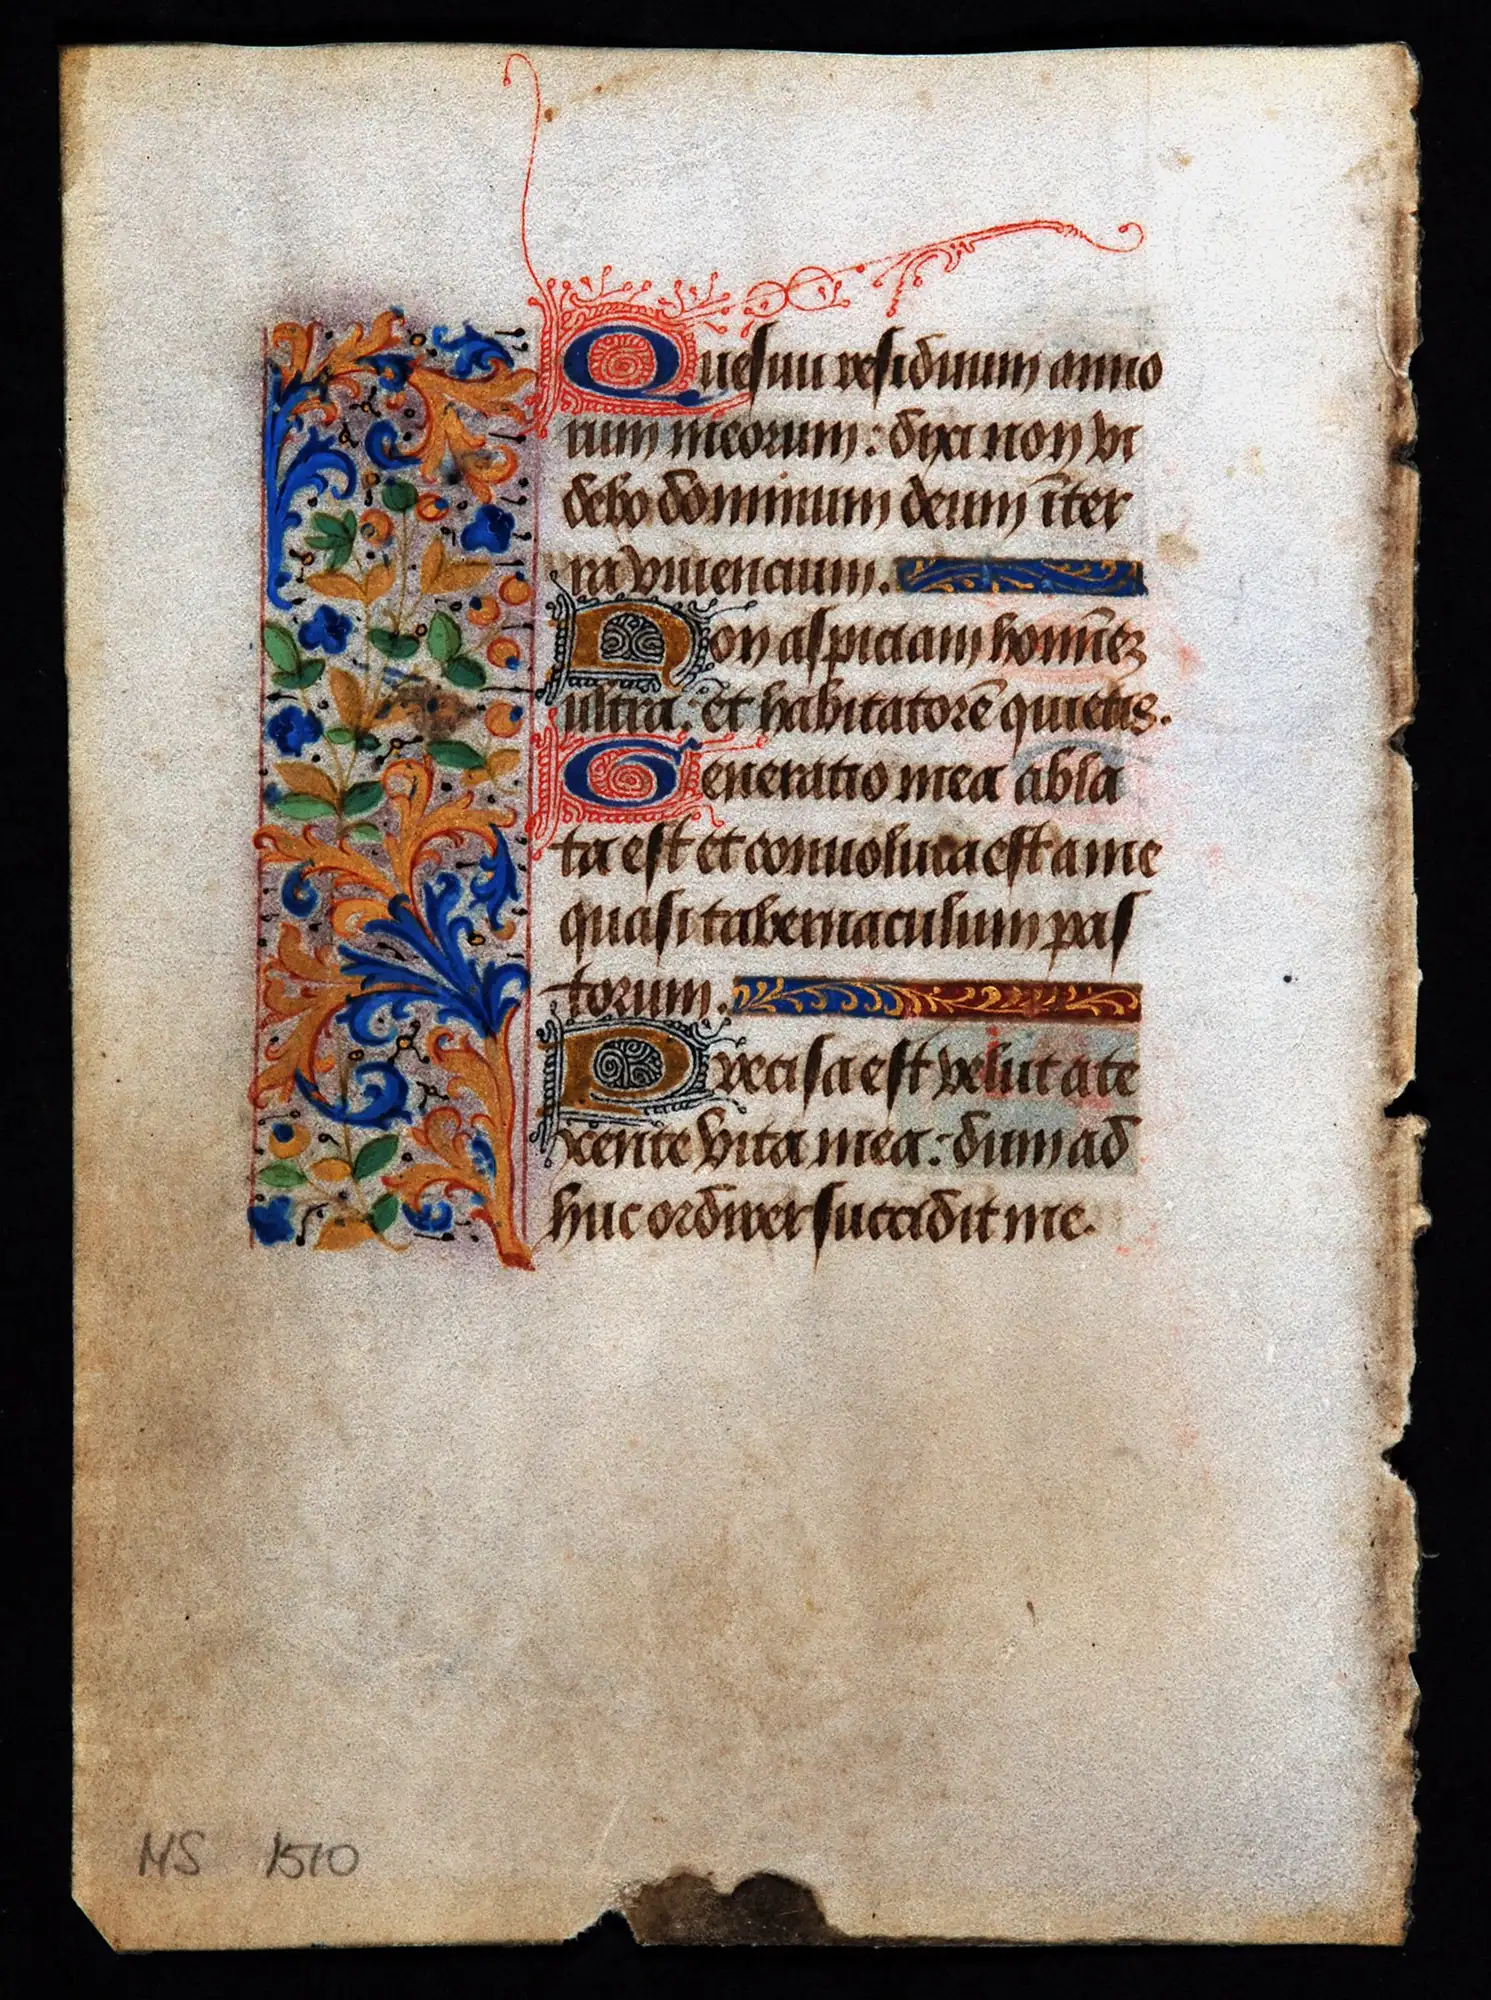 Quesiui residuum anno
rum meorum: dixi non vi
debo dominum deum īter
ra viuencium.
Non aspiciam hominē
ultra. et habitatorē quietis.
Generatio mea abla
ta est et conuoluta est a me
quasi tabernaculum pas
torum.
Precisa est velut a te
xente vita mea: dum ad
huc ordirer succidit me.
MS 1510